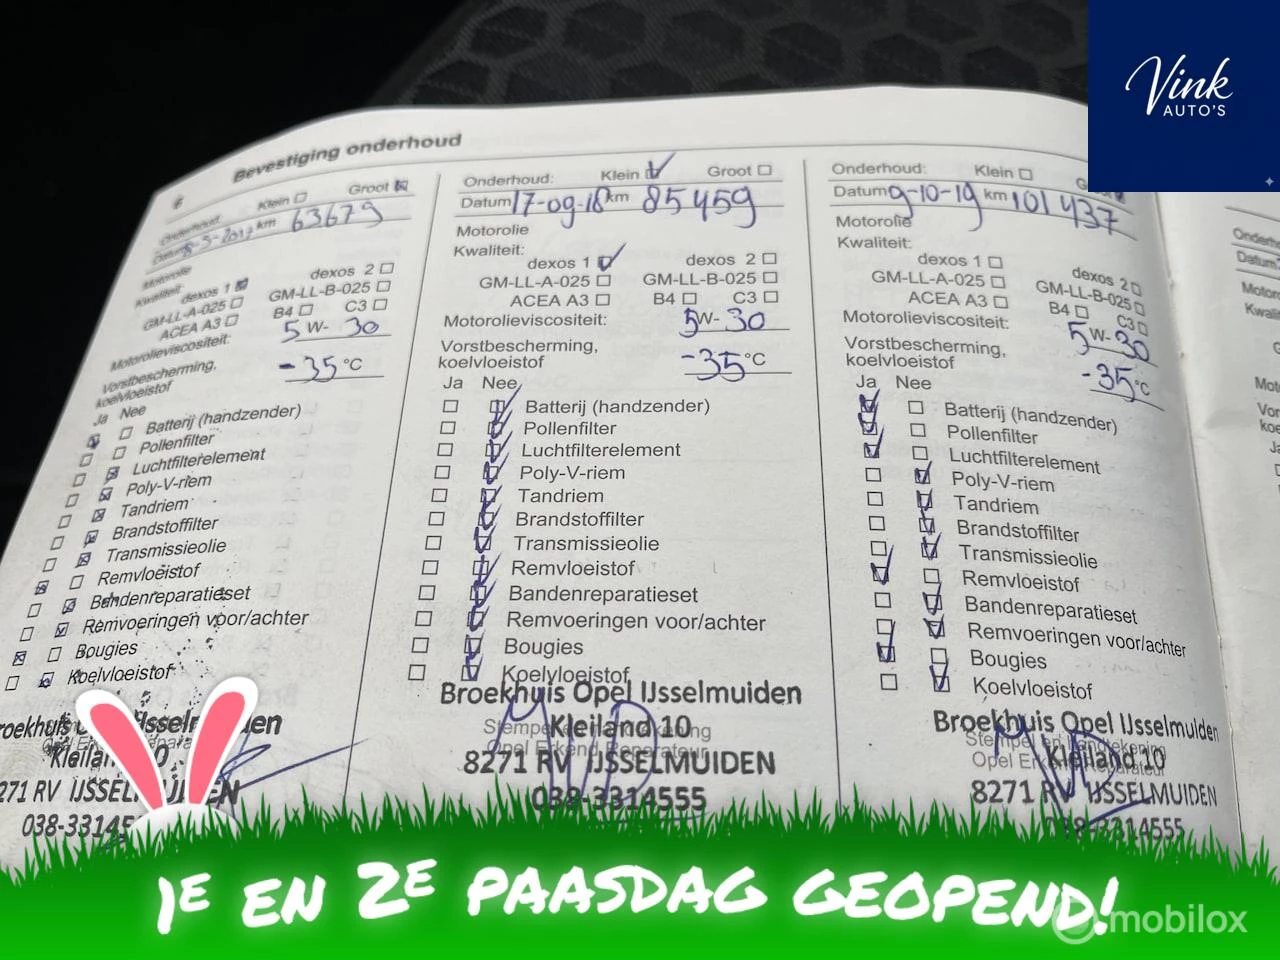 Vink
AUTO'S
6
Bevestiging onderhoud
Onderhoud: Klein Groot
Datum 8-5-2017 km 63679
Motorolie
Kwaliteit:
dexos 1 dexos 2
GM-LL-A-025 GM-LL-B-025
ACEA A3 B4 C3
Motorolieviscositeit: 5W-30
Vorstbescherming,
koelvloeistof -35°C
Ja Nee
Batterij (handzender)
Pollenfilter
Luchtfilterelement
Poly-V-riem
Tandriem
Brandstoffilter
Transmissieolie
Remvloeistof
Bandenreparatieset
Remvoeringen voor/achter
Bougies
Koelvloeistof
roekhuis Opel IJsselmuiden
Kleiland 10
271 RV IJSSELMUIDEN
038-33145
Onderhoud: Klein Groot
Datum 17-09-18 km 85459
Motorolie
Kwaliteit:
dexos 1 dexos 2
GM-LL-A-025 GM-LL-B-025
ACEA A3 B4 C3
Motorolieviscositeit: 5W-30
Vorstbescherming,
koelvloeistof -35°C
Ja Nee
Batterij (handzender)
Pollenfilter
Luchtfilterelement
Poly-V-riem
Tandriem
Brandstoffilter
Transmissieolie
Remvloeistof
Bandenreparatieset
Remvoeringen voor/achter
Bougies
Koelvloeistof
Broekhuis Opel IJsselmuiden
Stempel en handtekening
Kleiland 10
Opel Erkend Reparateur
8271 RV IJSSELMUIDEN
038-3314555
Onderhoud: Klein G
Datum 9-10-19 km 101437
Motorolie
Kwaliteit:
dexos 1 dexos 2
GM-LL-A-025 GM-LL-B-025
ACEA A3 B4 C3
Motorolieviscositeit: 5W-30
Vorstbescherming,
koelvloeistof -35°C
Ja Nee
Batterij (handzender)
Pollenfilter
Luchtfilterelement
Poly-V-riem
Tandriem
Brandstoffilter
Transmissieolie
Remvloeistof
Bandenreparatieset
Remvoeringen voor/achter
Bougies
Koelvloeistof
Broekhuis Opel IJsselmuiden
Stempel en handtekening
Kleiland 10
Opel Erkend Reparateur
8271 RV IJSSELMUIDEN
038-3314555
Onderh
Datum
Motor
Kwalit
1E EN 2E PAASDAG GEOPEND!
mobilox